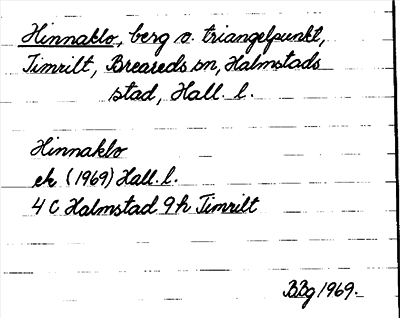 Hinnaklo, berg o. triangelpunkt,
Timrilt, Breareds sn, Halmstads
stad, Hall. l.
Hinnaklo
ek (1969) Hall. l.
4 C Halmstad 9h Timrilt
BBg 1969.